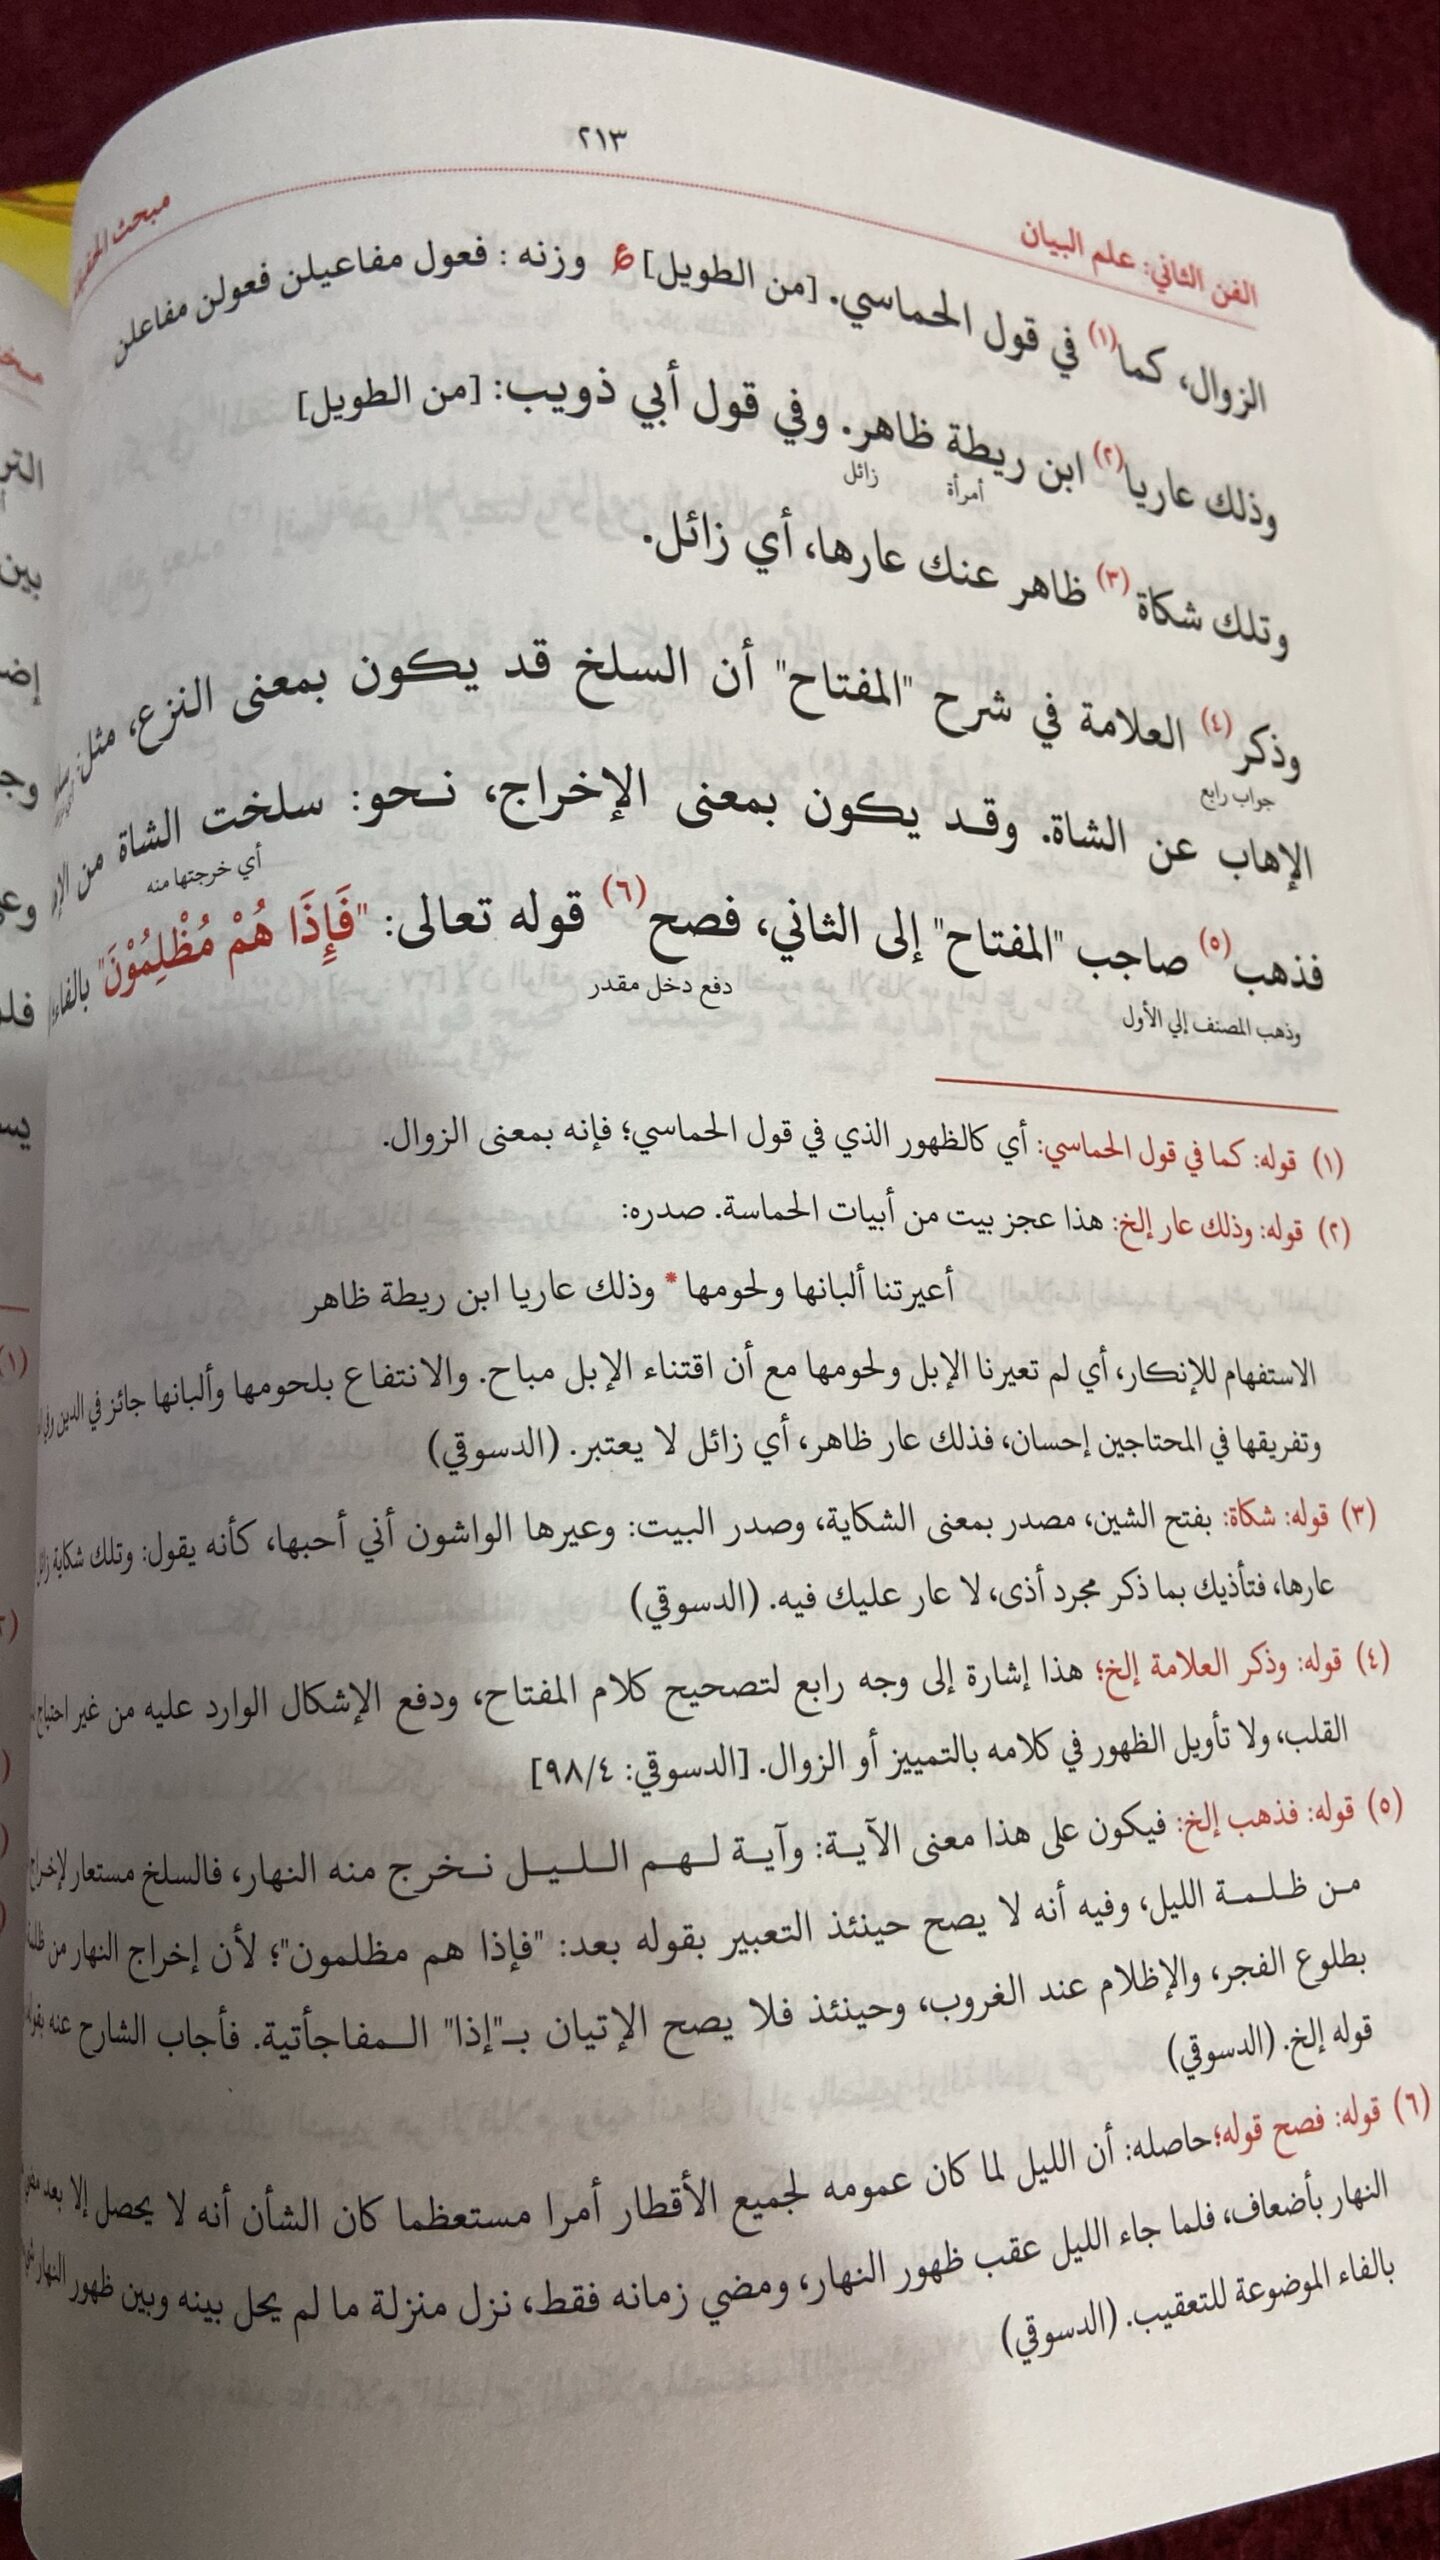 ٢١٣
الفن الثاني: علم البيان
مبحث
الزوال، كما(١) في قول الحماسي. [من الطويل] وزنه : فعول مفاعيلن فعولن مفاعلن
وذلك عاريا(٢) ابن ريطة ظاهر. وفي قول أبي ذويب: [من الطويل]
أمرأة زائل
وتلك شكاة(٣) ظاهر عنك عارها، أي زائل.
وذكر(٤) العلامة في شرح "المفتاح" أن السلخ قد يكون بمعنى النزع، مثل:
جواب رابع
الإهاب عن الشاة. وقد يكون بمعنى الإخراج، نحو: سلخت الشاة من
أي خرجتها منه
فذهب(٥) صاجب "المفتاح" إلى الثاني، فصح(٦) قوله تعالى: "فَإِذَا هُمْ مُظْلِمُوْنَ" بالفاء
وذهب المصنف إلي الأول دفع دخل مقدر
(١) قوله: كما في قول الحماسي: أي كالظهور الذي في قول الحماسي؛ فإنه بمعنى الزوال.
(٢) قوله: وذلك عار إلخ: هذا عجز بيت من أبيات الحماسة. صدره:
أعيرتنا ألبانها ولحومها * وذلك عاريا ابن ريطة ظاهر
الاستفهام للإنكار، أي لم تعيرنا الإبل ولحومها مع أن اقتناء الإبل مباح. والانتفاع بلحومها وألبانها جائز في الدين
وتفريقها في المحتاجين إحسان، فذلك عار ظاهر، أي زائل لا يعتبر. (الدسوقي)
(٣) قوله: شكاة: بفتح الشين، مصدر بمعنى الشكاية، وصدر البيت: وعيرها الواشون أني أحبها، كأنه يقول: وتلك شكاية
عارها، فتأذيك بما ذكر مجرد أذى، لا عار عليك فيه. (الدسوقي)
(٤) قوله: وذكر العلامة إلخ؛ هذا إشارة إلى وجه رابع لتصحيح كلام المفتاح، ودفع الإشكال الوارد عليه من غير احتياج
القلب، ولا تأويل الظهور في كلامه بالتمييز أو الزوال. [الدسوقي: ٩٨/٤]
(٥) قوله: فذهب إلخ: فيكون على هذا معنى الآية: وآية لهم الليل نخرج منه النهار، فالسلخ مستعار لإخراج
من ظلمة الليل، وفيه أنه لا يصح حينئذ التعبير بقوله بعد: "فإذا هم مظلمون"؛ لأن إخراج النهار من
بطلوع الفجر، والإظلام عند الغروب، وحينئذ فلا يصح الإتيان بـ"إذا" المفاجأتية. فأجاب الشارح عنه
قوله إلخ. (الدسوقي)
(٦) قوله: فصح قوله؛ حاصله: أن الليل لما كان عمومه لجميع الأقطار أمرا مستعظما كان الشأن أنه لا يحصل إلا بعد
النهار بأضعاف، فلما جاء الليل عقب ظهور النهار، ومضي زمانه فقط، نزل منزلة ما لم يحل بينه وبين ظهور النهار
بالفاء الموضوعة للتعقيب. (الدسوقي)